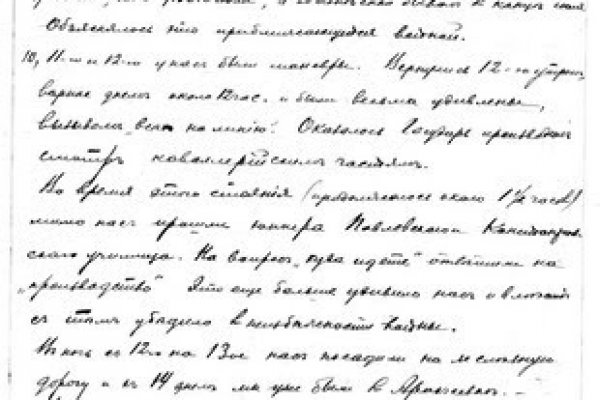 Объяснялось это приближающейся войной.
10, 11-го и 12-го у нас были маневры. Вернулись 12-го утром,
вернее днем около 12 час. и были весьма удивлены,
вызовом "всех на линию". Оказалось Государь производил
смотр кавалерийским частям.
Во время этого стояния (продолжалось около 1½ часов)
мимо нас прошли юнкера Павловского
училища. На вопрос "куда идете" ответили на
"производство" Это еще больше удивило нас и
с этим убедило в неизбежности войны.
В ночь с 12-го на 13-ое нас посадили на железную
дорогу и 14 днем мы уже были в